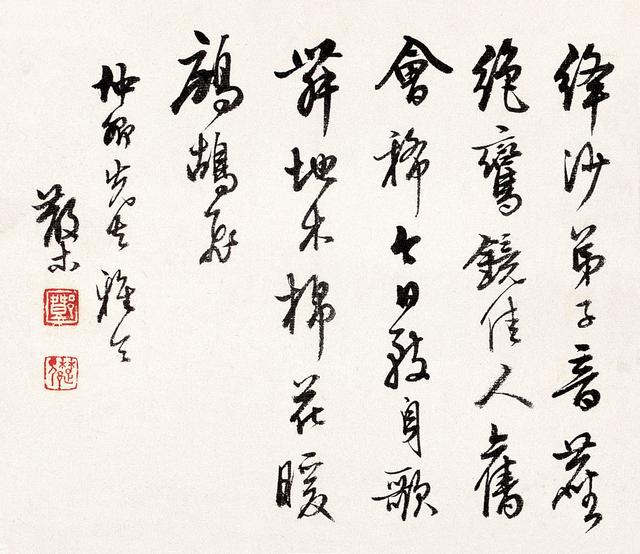 絳沙弟子音塵
絕鸞鏡佳人舊
會稀今日致身歌
舞地木棉花暖
鷓鴣飛
仲先生雅
散木